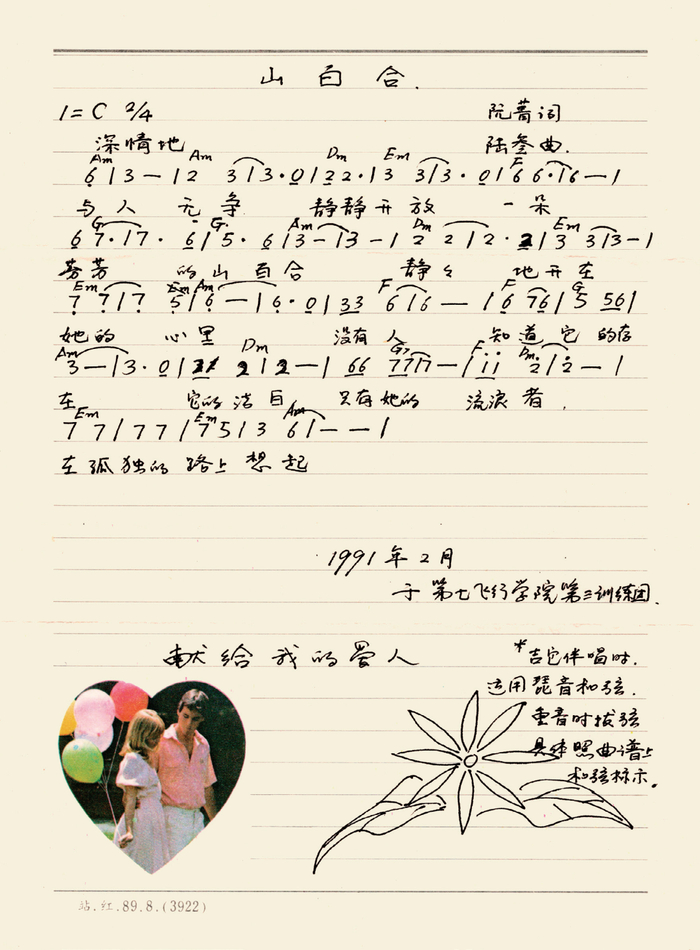 山百合.
1=C 2/4 阮菁词
深情地 陆叁曲.
Am Am Dm Em F
6 | 3 — | 2 3 | 3 · 0 | 2 2 · | 3 3 | 3 · 0 | 6 6 · | 6 — |
与人 无争 静静开放 一朵
G G Am Dm Em
6 7 · | 7 · 6 | 5 · 6 | 3 — | 3 — | 2 2 | 2 · 2 | 3 3 | 3 — |
芬芳 的山百合 静々 地开在
Em Em Am F F G
7 7 | 7 5 | 6 — | 6 · 0 | 3 3 6 | 6 — | 6 7 6 | 5 5 6 |
她的 心里 没有人 知道它的存
Am Dm G7 F Dm
3 — | 3 · 0 | 2 | 2 — | 6 6 7 7 | 7 — | i i 2 | 2 — |
在 它的洁白 只有她的 流浪者.
Em Em Am
7 7 | 7 7 | 7 5 | 3 6 | — — |
在孤独的路上想起
1991年2月
于第七飞行学院第三训练团.
献给我的爱人
*吉它伴唱时.
运用琶音和弦.
重音时拔弦
具体照曲谱上
和弦标示.
站.红.89.8.(3922)